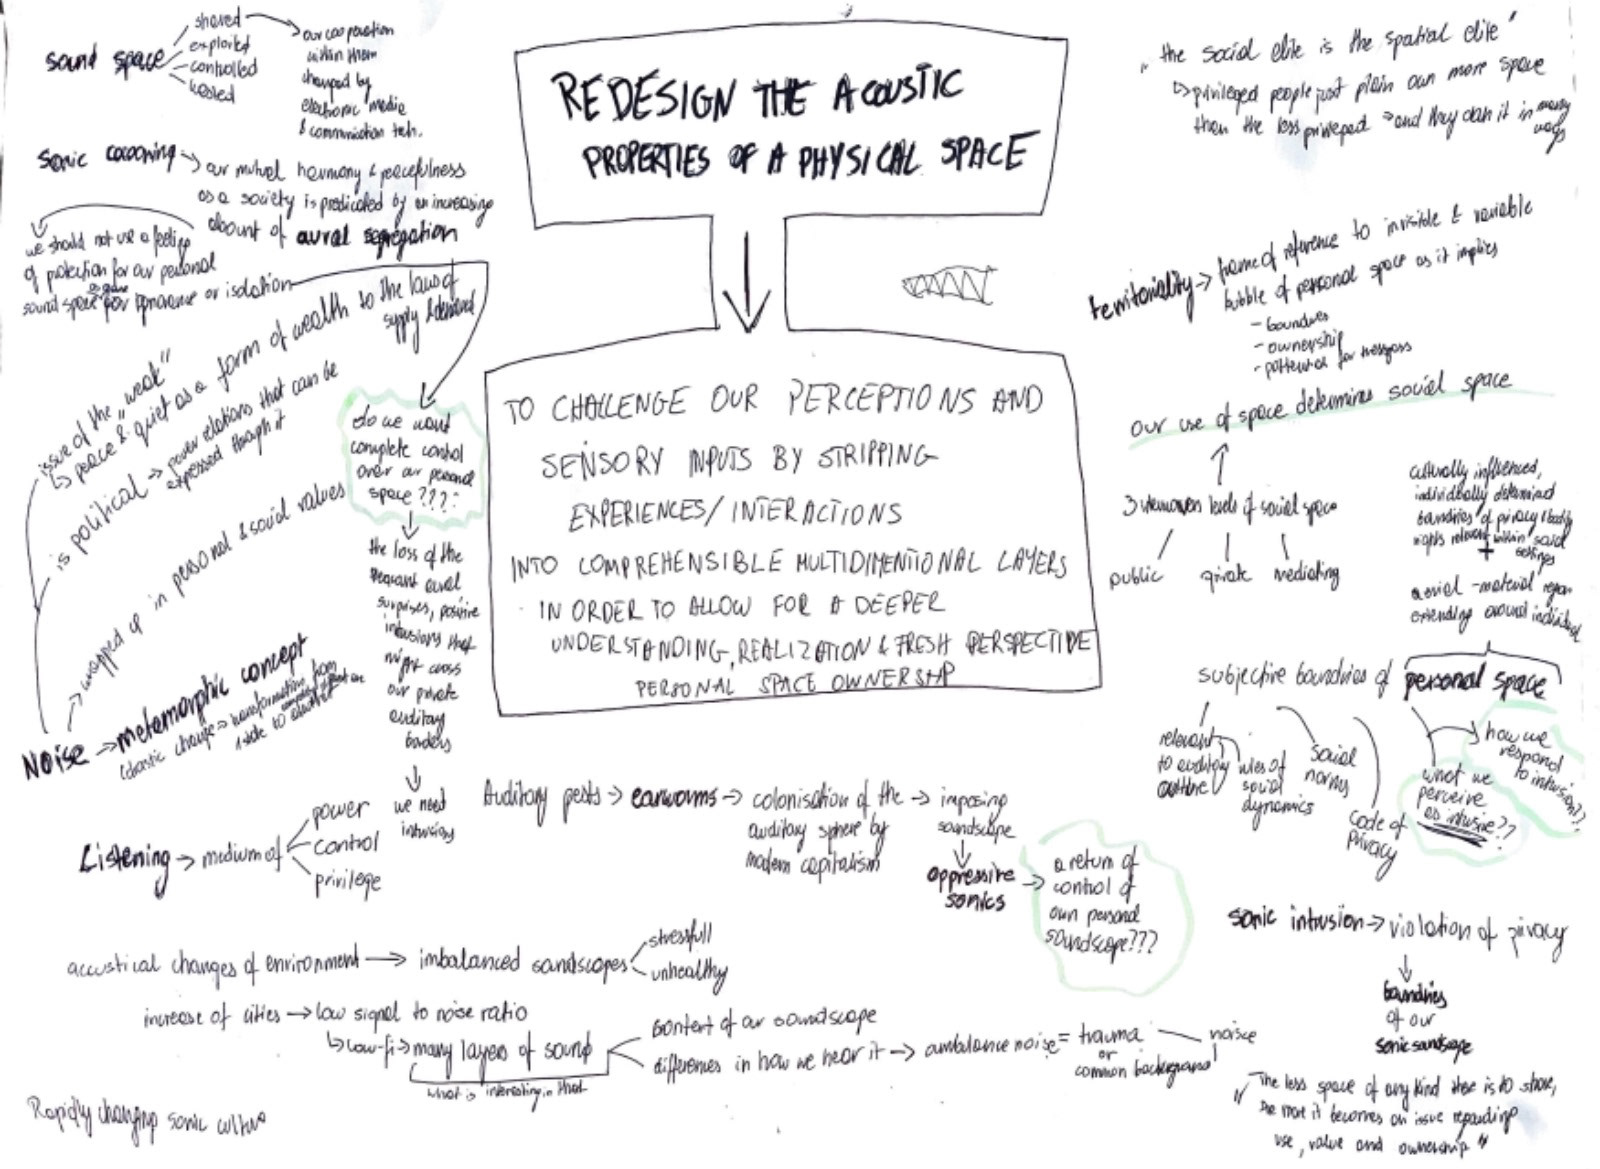 sound space
shared
exploited
controlled
our cooperation
within them
changed by
electronic media
& communication tech.
sonic cocooning → our mutual harmony & peacefulness
as a society is predicated by an increasing
amount of aural segregation
we should not use a feeling
of protection for our personal
sound space for ignorance or isolation
REDESIGN THE ACOUSTIC
PROPERTIES OF A PHYSICAL SPACE
TO CHALLENGE OUR PERCEPTIONS AND
SENSORY INPUTS BY STRIPPING
EXPERIENCES/INTERACTIONS
INTO COMPREHENSIBLE MULTIDIMENTIONAL LAYERS
IN ORDER TO ALLOW FOR A DEEPER
UNDERSTANDING, REALIZATION & FRESH PERSPECTIVE
PERSONAL SPACE OWNERSHIP
"the social elite is the spatial elite"
↳ privileged people just plain own more space
than the less privileged → and they own it in many
ways
territoriality → frame of reference to invisible & variable
bubble of personal space as it implies
- boundries
- ownership
- potential for trespass
our use of space determines social space
3 interwoven levels of social space
public
private
mediating
culturally influenced,
individually determined
boundries of privacy & bodily
rights relevant within social
settings
+
aerial - material region
extending around individual
subjective boundries of personal space
relevant
to auditory
culture
rules of
social
dynamics
social
norms
code of
privacy
what we
perceive
as intrusive??
how we
respond
to intrusion??
sonic intrusion → violation of privacy
boundries
of our
sonic sandscape
"The less space of any kind there is to share,
the more it becomes an issue regarding
use, value and ownership"
issue of the "weak"
↳ peace & quiet as a form of wealth to the laws of
supply & demand
is political → power relations that can be
expressed through it
wrapped up in personal & social values
Noise → metamorphic concept
(drastic change → transformation from
1 state to another
do we want
complete control
over our personal
space???
the loss of the
pleasant aural
surprises, positive
intrusions that
might cross
our private
auditory
borders
we need
intrusions
Listening → medium of
power
control
privilege
Auditory pests → earworms → colonisation of the
auditory sphere by
modern capitalism
→ imposing
soundscape
oppressive
sonics
→ a return of
control of
own personal
soundscape???
accustical changes of environment → imbalanced sandscapes
stressfull
unhealthy
increase of cities → low signal to noise ratio
↳ low-fi → many layers of sound
what is interesting in that
content of our soundscape
differences in how we hear it → ambulance noise = trauma
or
common background
noisce
Rapidly changing sonic culture